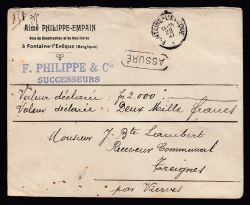 Aimé PHILIPPE-EMPAIN
Bois de Construction et de Mines
à Fontaine-l'Evêque (Belgique)
F. PHILIPPE & Cie
SUCCESSEURS
ASSURÉ
Valeur déclarée : fr 2.000
Valeur déclarée : Deux Mille francs
Monsieur J. Bte Lambert
Receveur Communal
Treignes
par Vierves